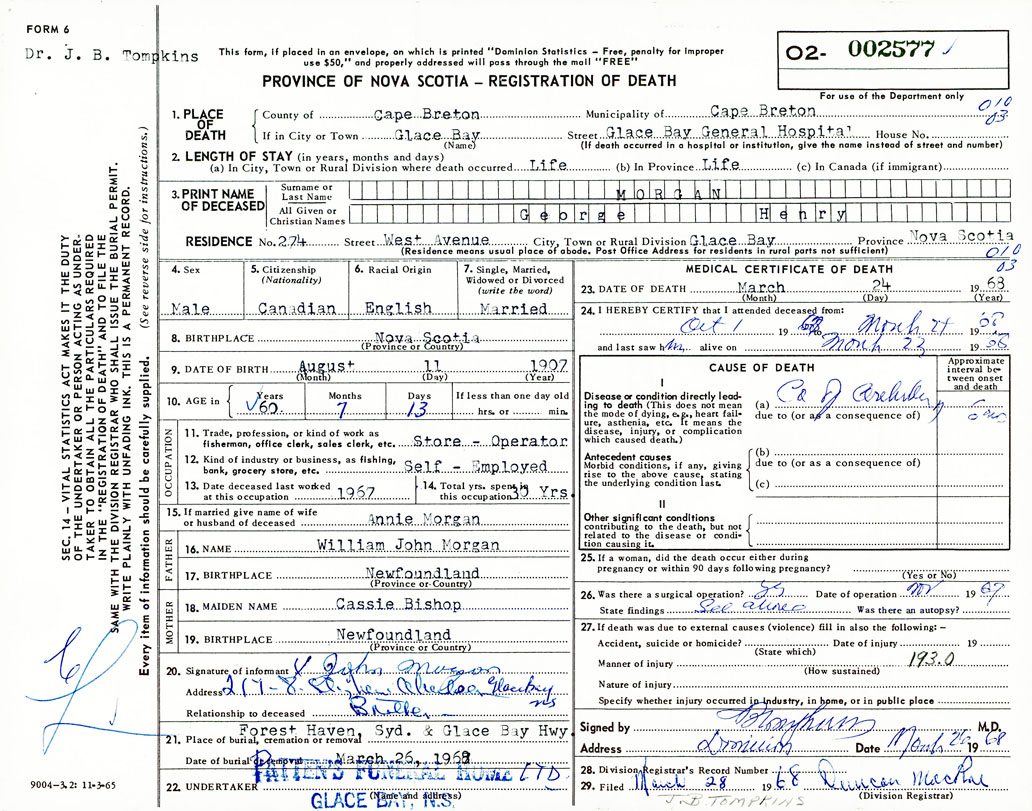 FORM 6
Dr. J. B. Tompkins
This form, if placed in an envelope, on which is printed "Dominion Statistics – Free, penalty for improper
use $50," and properly addressed will pass through the mail "FREE"
O2- 002577
PROVINCE OF NOVA SCOTIA – REGISTRATION OF DEATH
For use of the Department only
1. PLACE OF DEATH
County of Cape Breton Municipality of Cape Breton 010
03
If in City or Town Glace Bay Street Glace Bay General Hospital House No.
(Name) (If death occurred in a hospital or institution, give the name instead of street and number)
2. LENGTH OF STAY (in years, months and days)
(a) In City, Town or Rural Division where death occurred Life (b) In Province Life (c) In Canada (if immigrant)
3. PRINT NAME OF DECEASED
Surname or Last Name MORGAN
All Given or Christian Names George Henry
RESIDENCE No. 274 Street West Avenue City, Town or Rural Division Glace Bay Province Nova Scotia
(Residence means usual place of abode. Post Office Address for residents in rural parts not sufficient) 010
03
4. Sex
Male
5. Citizenship
(Nationality)
Canadian
6. Racial Origin
English
7. Single, Married,
Widowed or Divorced
(write the word)
Married
8. BIRTHPLACE Nova Scotia
(Province or Country)
9. DATE OF BIRTH August 11 1907
(Month) (Day) (Year)
10. AGE in Years Months Days If less than one day old
60 7 13 hrs. or min.
OCCUPATION
11. Trade, profession, or kind of work as
fisherman, office clerk, sales clerk, etc. Store - Operator
12. Kind of industry or business, as fishing,
bank, grocery store, etc. Self - Employed
13. Date deceased last worked
at this occupation 1967
14. Total yrs. spent in
this occupation 30 Yrs.
15. If married give name of wife
or husband of deceased Annie Morgan
FATHER
16. NAME William John Morgan
17. BIRTHPLACE Newfoundland
(Province or Country)
MOTHER
18. MAIDEN NAME Cassie Bishop
19. BIRTHPLACE Newfoundland
(Province or Country)
20. Signature of informant X John Morgan
Address
Relationship to deceased Brother
21. Place of burial, cremation or removal Forest Haven, Syd. & Glace Bay Hwy.
Date of burial or removal March 26, 1968
22. UNDERTAKER PATTEN'S FUNERAL HOME LTD.
(Name and address)
GLACE BAY, N.S.
MEDICAL CERTIFICATE OF DEATH
23. DATE OF DEATH March 24 1968
(Month) (Day) (Year)
24. I HEREBY CERTIFY that I attended deceased from:
Oct 1 19 March 24
and last saw him alive on March 23 19
CAUSE OF DEATH
Approximate
interval be-
tween onset
and death
I
Disease or condition directly lead-
ing to death (This does not mean
the mode of dying, e.g., heart fail-
ure, asthenia, etc. It means the
disease, injury, or complication
which caused death.)
(a) Ca of
due to (or as a consequence of)
Antecedent causes
Morbid conditions, if any, giving
rise to the above cause, stating
the underlying condition last.
(b)
due to (or as a consequence of)
(c)
II
Other significant conditions
contributing to the death, but not
related to the disease or condi-
tion causing it.
25. If a woman, did the death occur either during
pregnancy or within 90 days following pregnancy?
(Yes or No)
26. Was there a surgical operation? yes Date of operation Nov 1967
State findings See above Was there an autopsy?
27. If death was due to external causes (violence) fill in also the following: –
Accident, suicide or homicide? Date of injury 19
(State which)
Manner of injury 193.0
(How sustained)
Nature of injury
Specify whether injury occurred in industry, in home, or in public place
Signed by M.D.
Address Dominion Date March 26 1968
28. Division Registrar's Record Number
29. Filed March 28 1968 Duncan MacRae
(Division Registrar)
J.B. TOMPKINS
SEC. 14 – VITAL STATISTICS ACT MAKES IT THE DUTY
OF THE UNDERTAKER OR PERSON ACTING AS UNDER-
TAKER TO OBTAIN ALL THE PARTICULARS REQUIRED
IN THE "REGISTRATION OF DEATH" AND TO FILE THE
SAME WITH THE DIVISION REGISTRAR WHO SHALL ISSUE THE BURIAL PERMIT.
WRITE PLAINLY WITH UNFADING INK. THIS IS A PERMANENT RECORD.
Every item of information should be carefully supplied. (See reverse side for instructions.)
9004–3.2: 11-3-65